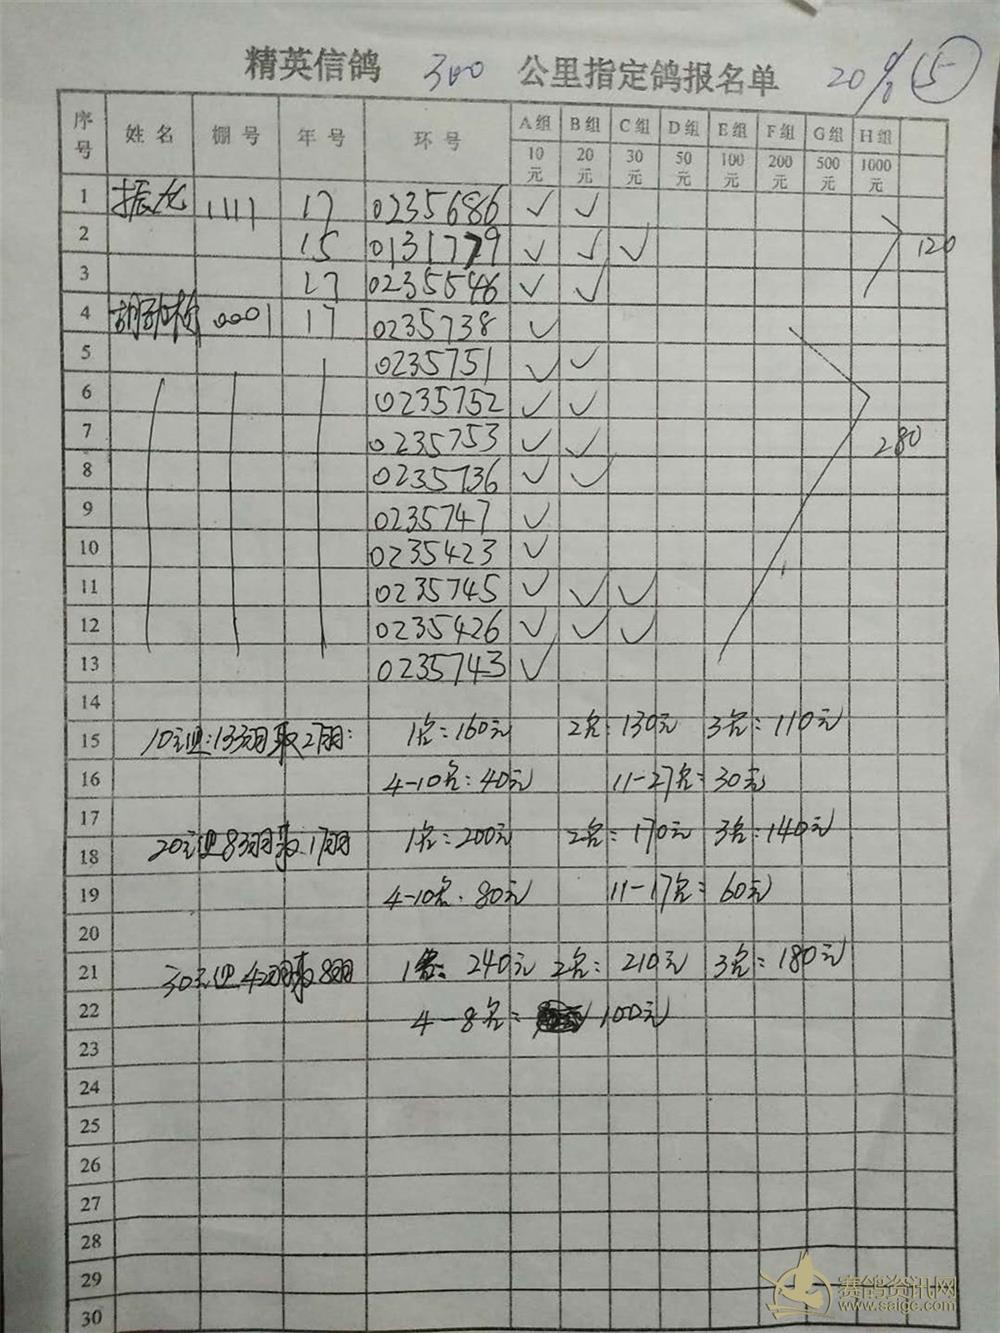 精英信鸽 300 公里指定鸽报名单 20% 5
序号 姓名 棚号 年号 环号 A组 B组 C组 D组 E组 F组 G组 H组
10元 20元 30元 50元 100元 200元 500元 1000元
1 振龙 1111 17 0235686 ✓ ✓
2 15 0131779 ✓ ✓ ✓ 120
3 17 0235546 ✓ ✓
4 0001 17 0235738 ✓
5 0235751 ✓ ✓
6 0235752 ✓ ✓
7 0235753 ✓ ✓ 280
8 0235736 ✓ ✓
9 0235747 ✓
10 0235423 ✓
11 0235745 ✓ ✓ ✓
12 0235426 ✓ ✓ ✓
13 0235743 ✓
14
15 10元组:133羽取27羽: 1名:160元 2名:130元 3名:110元
16 4-10名:40元 11-27名:30元
17
18 20元组83羽取17羽 1名:200元 2名:170元 3名:140元
19 4-10名:80元 11-17名:60元
20
21 30元组42羽取8羽 1名:240元 2名:210元 3名:180元
22 4-8名: 100元
23
24
25
26
27
28
29
30
赛鸽资讯网
www.saigc.com